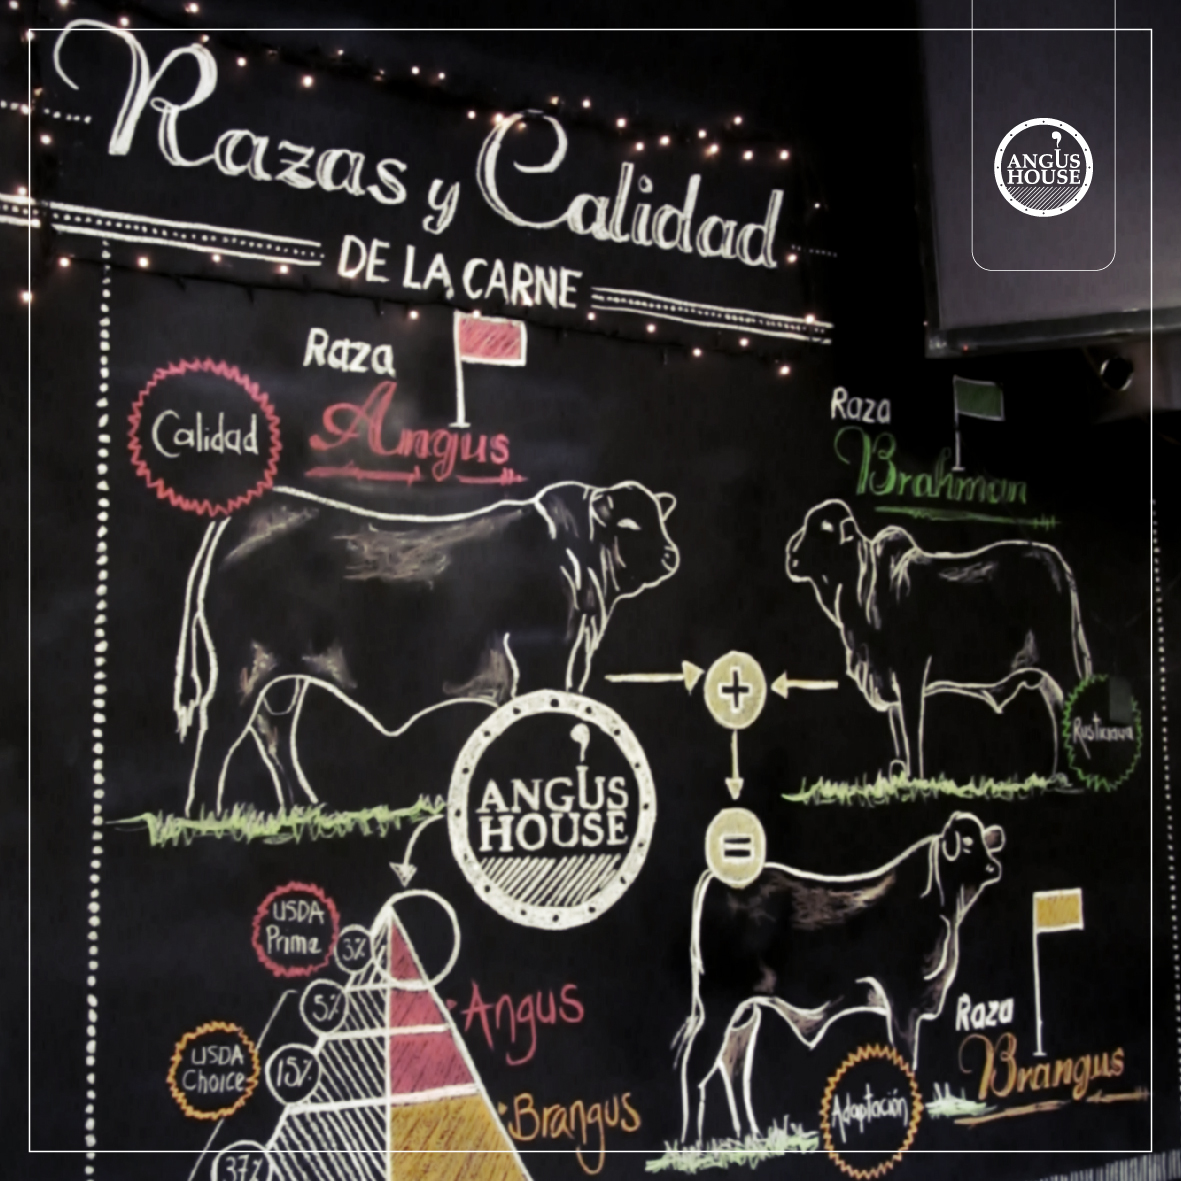 Razas y Calidad
DE LA CARNE
ANGUS
HOUSE
Raza
Angus
Calidad
Raza
Brahman
Rusticidad
+
=
ANGUS
HOUSE
USDA
Prime
3%
5%
Angus
USDA
Choice
15%
Brangus
37%
Raza
Brangus
Adaptación